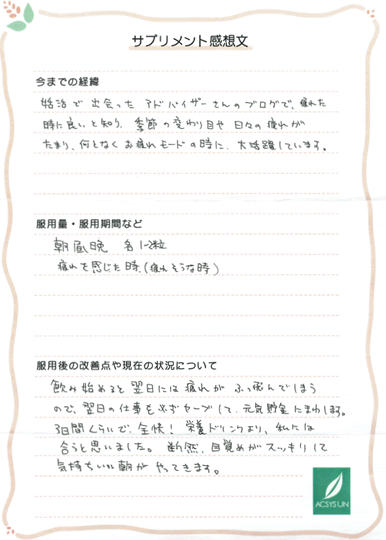 サプリメント感想文
今までの経緯
婚活で出会ったアドバイザーさんのブログで、疲れた
時に良いと知り、季節の変わり目や日々の疲れが
たまり、何となくお疲れモードの時に、大活躍しています。
服用量・服用期間など
朝昼晩 各1-2粒
疲れを感じた時、(疲れそうな時)
服用後の改善点や現在の状況について
飲み始めると翌日には疲れがふっ飛んでしまう
ので、翌日の仕事を必ずセーブして、元気貯金にまわします。
3日間くらいで、全快! 栄養ドリンクより、私には
合うと思いました。断然、目覚めがスッキリして
気持ちいい朝がやってきます。
ACSYSUN